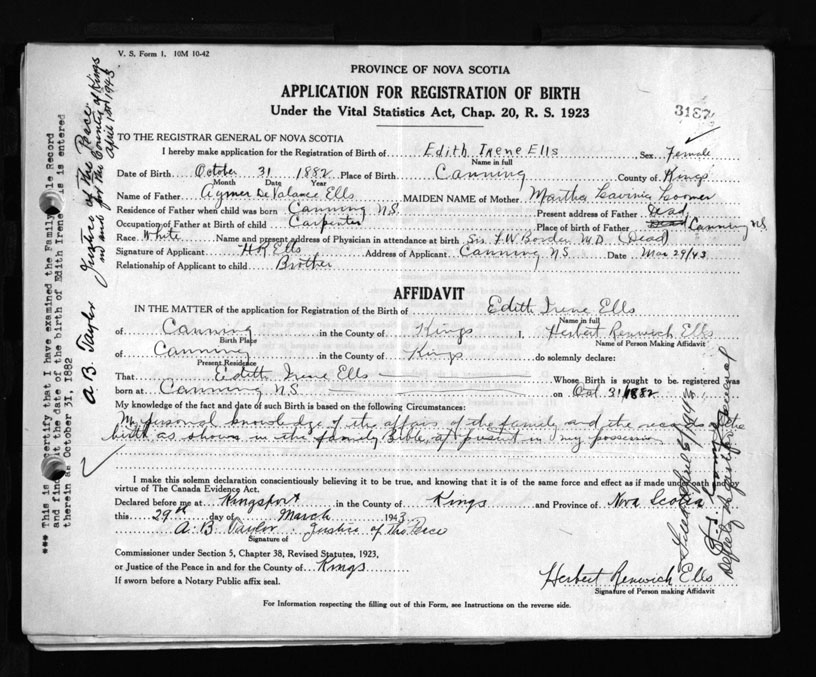 V. S. Form 1. 10M 10-42
PROVINCE OF NOVA SCOTIA
APPLICATION FOR REGISTRATION OF BIRTH
Under the Vital Statistics Act, Chap. 20, R. S. 1923
3187
TO THE REGISTRAR GENERAL OF NOVA SCOTIA
I hereby make application for the Registration of Birth of Edith Irene Ells Sex Female
Name in full
Date of Birth October 31 1882 Place of Birth Canning County of Kings
Month Date Year
Name of Father Aymer DeValance Ells MAIDEN NAME of Mother Martha Lavinia Loomer
Residence of Father when child was born Canning N.S. Present address of Father Dead
Occupation of Father at Birth of child Carpenter Place of birth of Father Dead Canning NS
Race White Name and present address of Physician in attendance at birth Sir F.W Borden M.D (Dead)
Signature of Applicant H R Ells Address of Applicant Canning NS Date Mar 29/43
Relationship of Applicant to child Brother
AFFIDAVIT
IN THE MATTER of the application for Registration of the Birth of Edith Irene Ells
Name in full
of Canning in the County of Kings I, Herbert Renwich Ells
Birth Place Name of Person Making Affidavit
of Canning in the County of Kings do solemnly declare:
Present Residence
That Edith Irene Ells Whose Birth is sought to be registered was
born at Canning N S on Oct 31/1882
My knowledge of the fact and date of such Birth is based on the following Circumstances:
My personal knowledge of the affairs of the family and the record of the
birth as shown in the family Bible, at present in my possession
I make this solemn declaration conscientiously believing it to be true, and knowing that it is of the same force and effect as if made under oath and
virtue of The Canada Evidence Act.
Declared before me at Kingsport in the County of Kings and Province of Nova Scotia
this 29th day of March 1943
A. B Taylor Justice of The Peace
Signature of
Commissioner under Section 5, Chapter 38, Revised Statutes, 1923,
or Justice of the Peace in and for the County of Kings
If sworn before a Notary Public affix seal.
Herbert Renwich Ells
Signature of Person making Affidavit
For Information respecting the filling out of this Form, see Instructions on the reverse side.
*** This is to certify that I have examined the Family Bible Record
and find that the date of the birth of Edith Irene Ells is entered
therein as October 31, 1882
A. B. Taylor Justice of The Peace
in and for the County of Kings
April 1st 1943
Deputy Registrar General